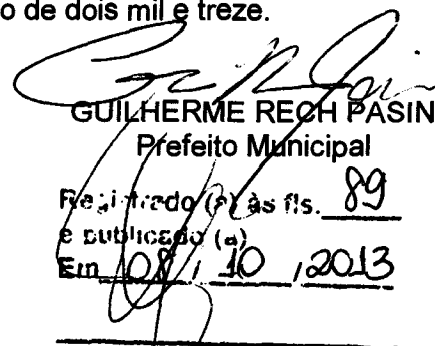 o de dois mil e treze.
GUILHERME RECH PASIN
Prefeito Municipal
Registrado (a) às fls. 89
e publicado (a)
Em 08 / 10 / 2013